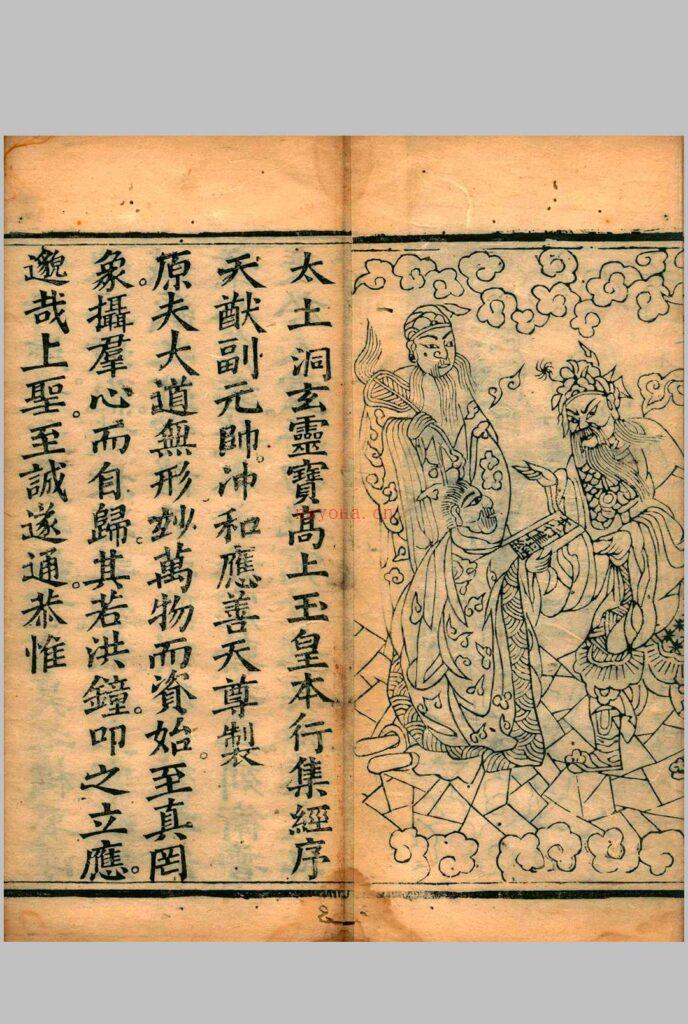 太上洞玄靈寶高上玉皇本行集經序
天猷副元帥。沖和應善天尊製
原夫大道無形。妙萬物而資始。至真罔
象。攝羣心而自歸。其若洪鐘。叩之立應。
邈哉上聖。至誠遂通。恭惟